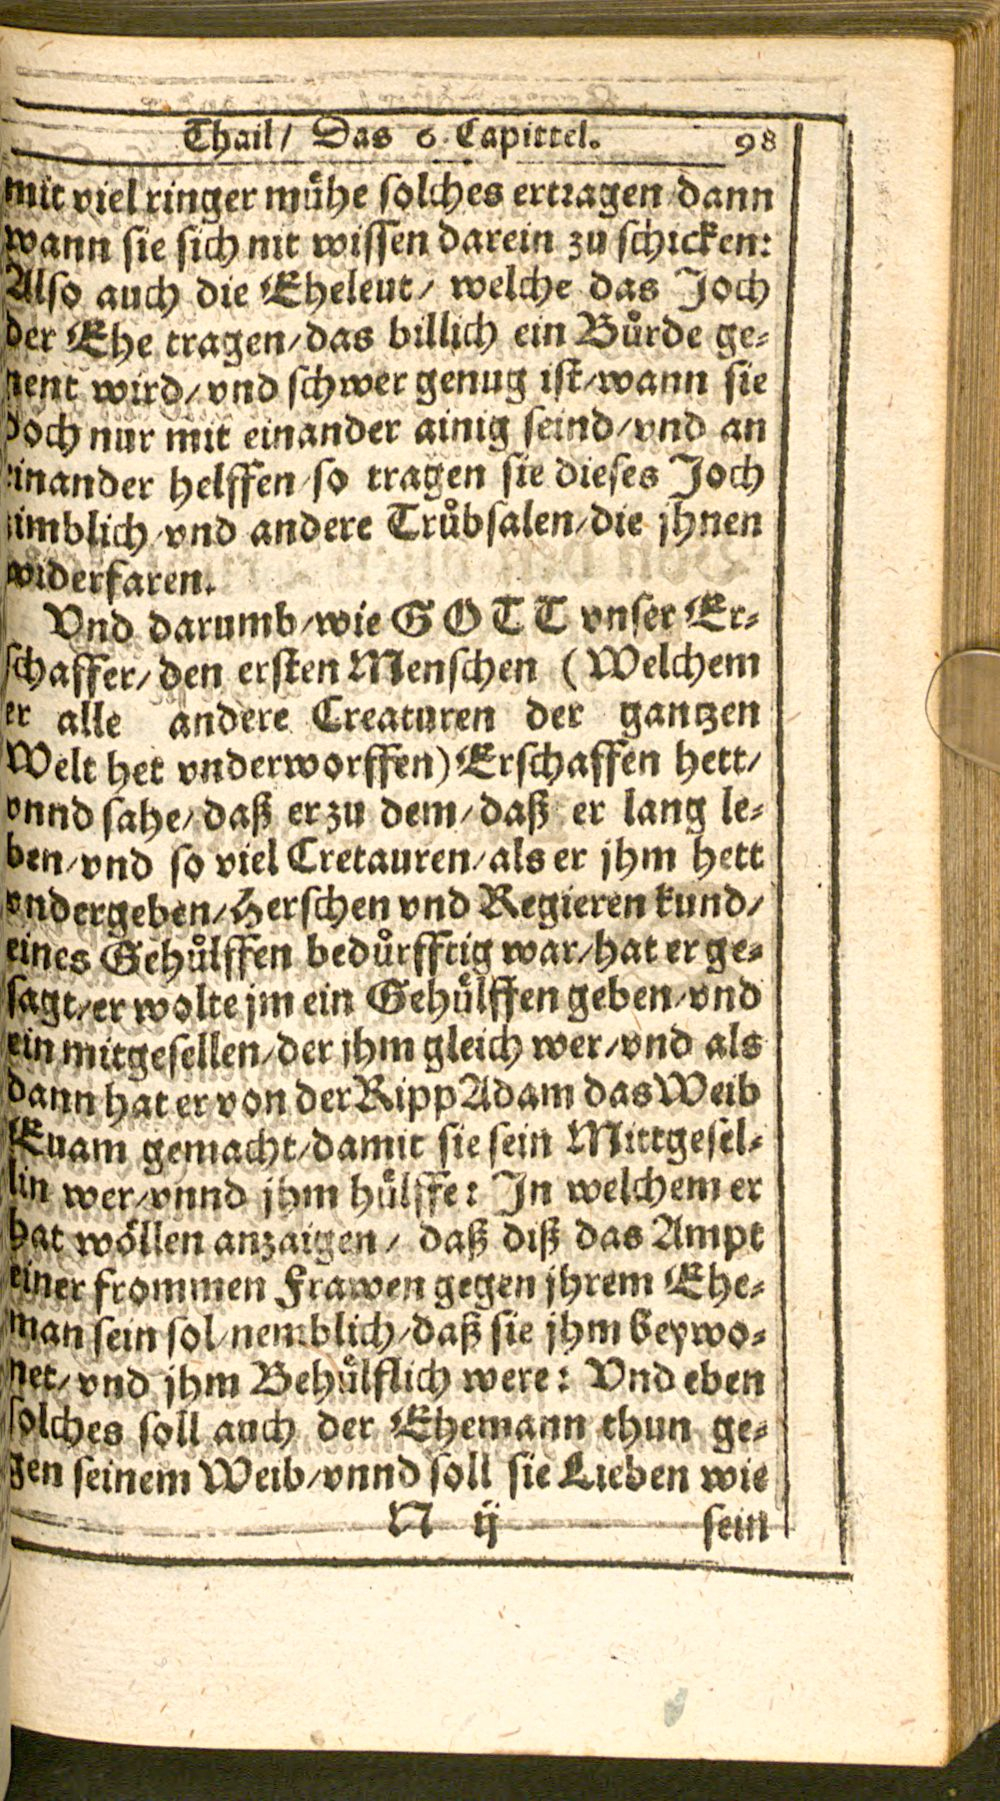 Thail/ Das 6. Capittel. 98
mit viel ringer mühe solches ertragen/dann
wann sie sich nit wissen darein zu schicken:
Also auch die Eheleut/ welche das Joch
der Ehe tragen/das billich ein Bůrde ge-
nent wird/vnd schwer genug ist/wann sie
doch nur mit einander ainig seind/vnd an
einander helffen/so tragen sie dieses Joch
zimblich/vnd andere Trůbsalen/die jhnen
widerfaren.
Vnd darumb/wie GOTT vnser Er-
schaffer/den ersten Menschen (Welchem
er alle andere Creaturen der gantzen
Welt het vnderworffen) Erschaffen hett/
vnnd sahe/daß er zu dem/daß er lang le-
ben/vnd so viel Cretauren/als er jhm hett
vndergeben/Herschen vnd Regieren kund/
eines Gehůlffen bedůrfftig war/hat er ge-
sagt/er wolte jm ein Gehůlffen geben/vnd
ein mitgesellen/der jhm gleich wer/vnd als
dann hat er von der Ripp Adam das Weib
Euam gemacht/damit sie sein Mittgesel-
lin wer/vnnd jhm hůlffe: In welchem er
hat wöllen anzaigen/ daß diß das Ampt
einer frommen Frawen gegen jhrem Ehe-
man sein sol/nemblich/daß sie jhm beywo-
net/vnd jhm Behůlflich were: Vnd eben
solches soll auch der Ehemann thun ge-
gen seinem Weib/vnnd soll sie Lieben wie
N ij sein